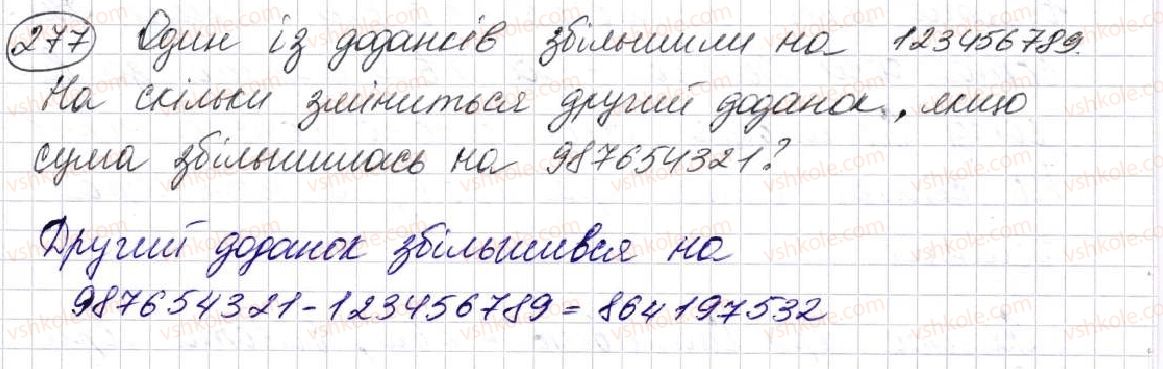 277 Один із доданків збільшили на 123456789.
На скільки зміниться другий доданок, якщо
сума збільшилась на 987654321?
Другий доданок збільшився на
987654321-123456789=864197532